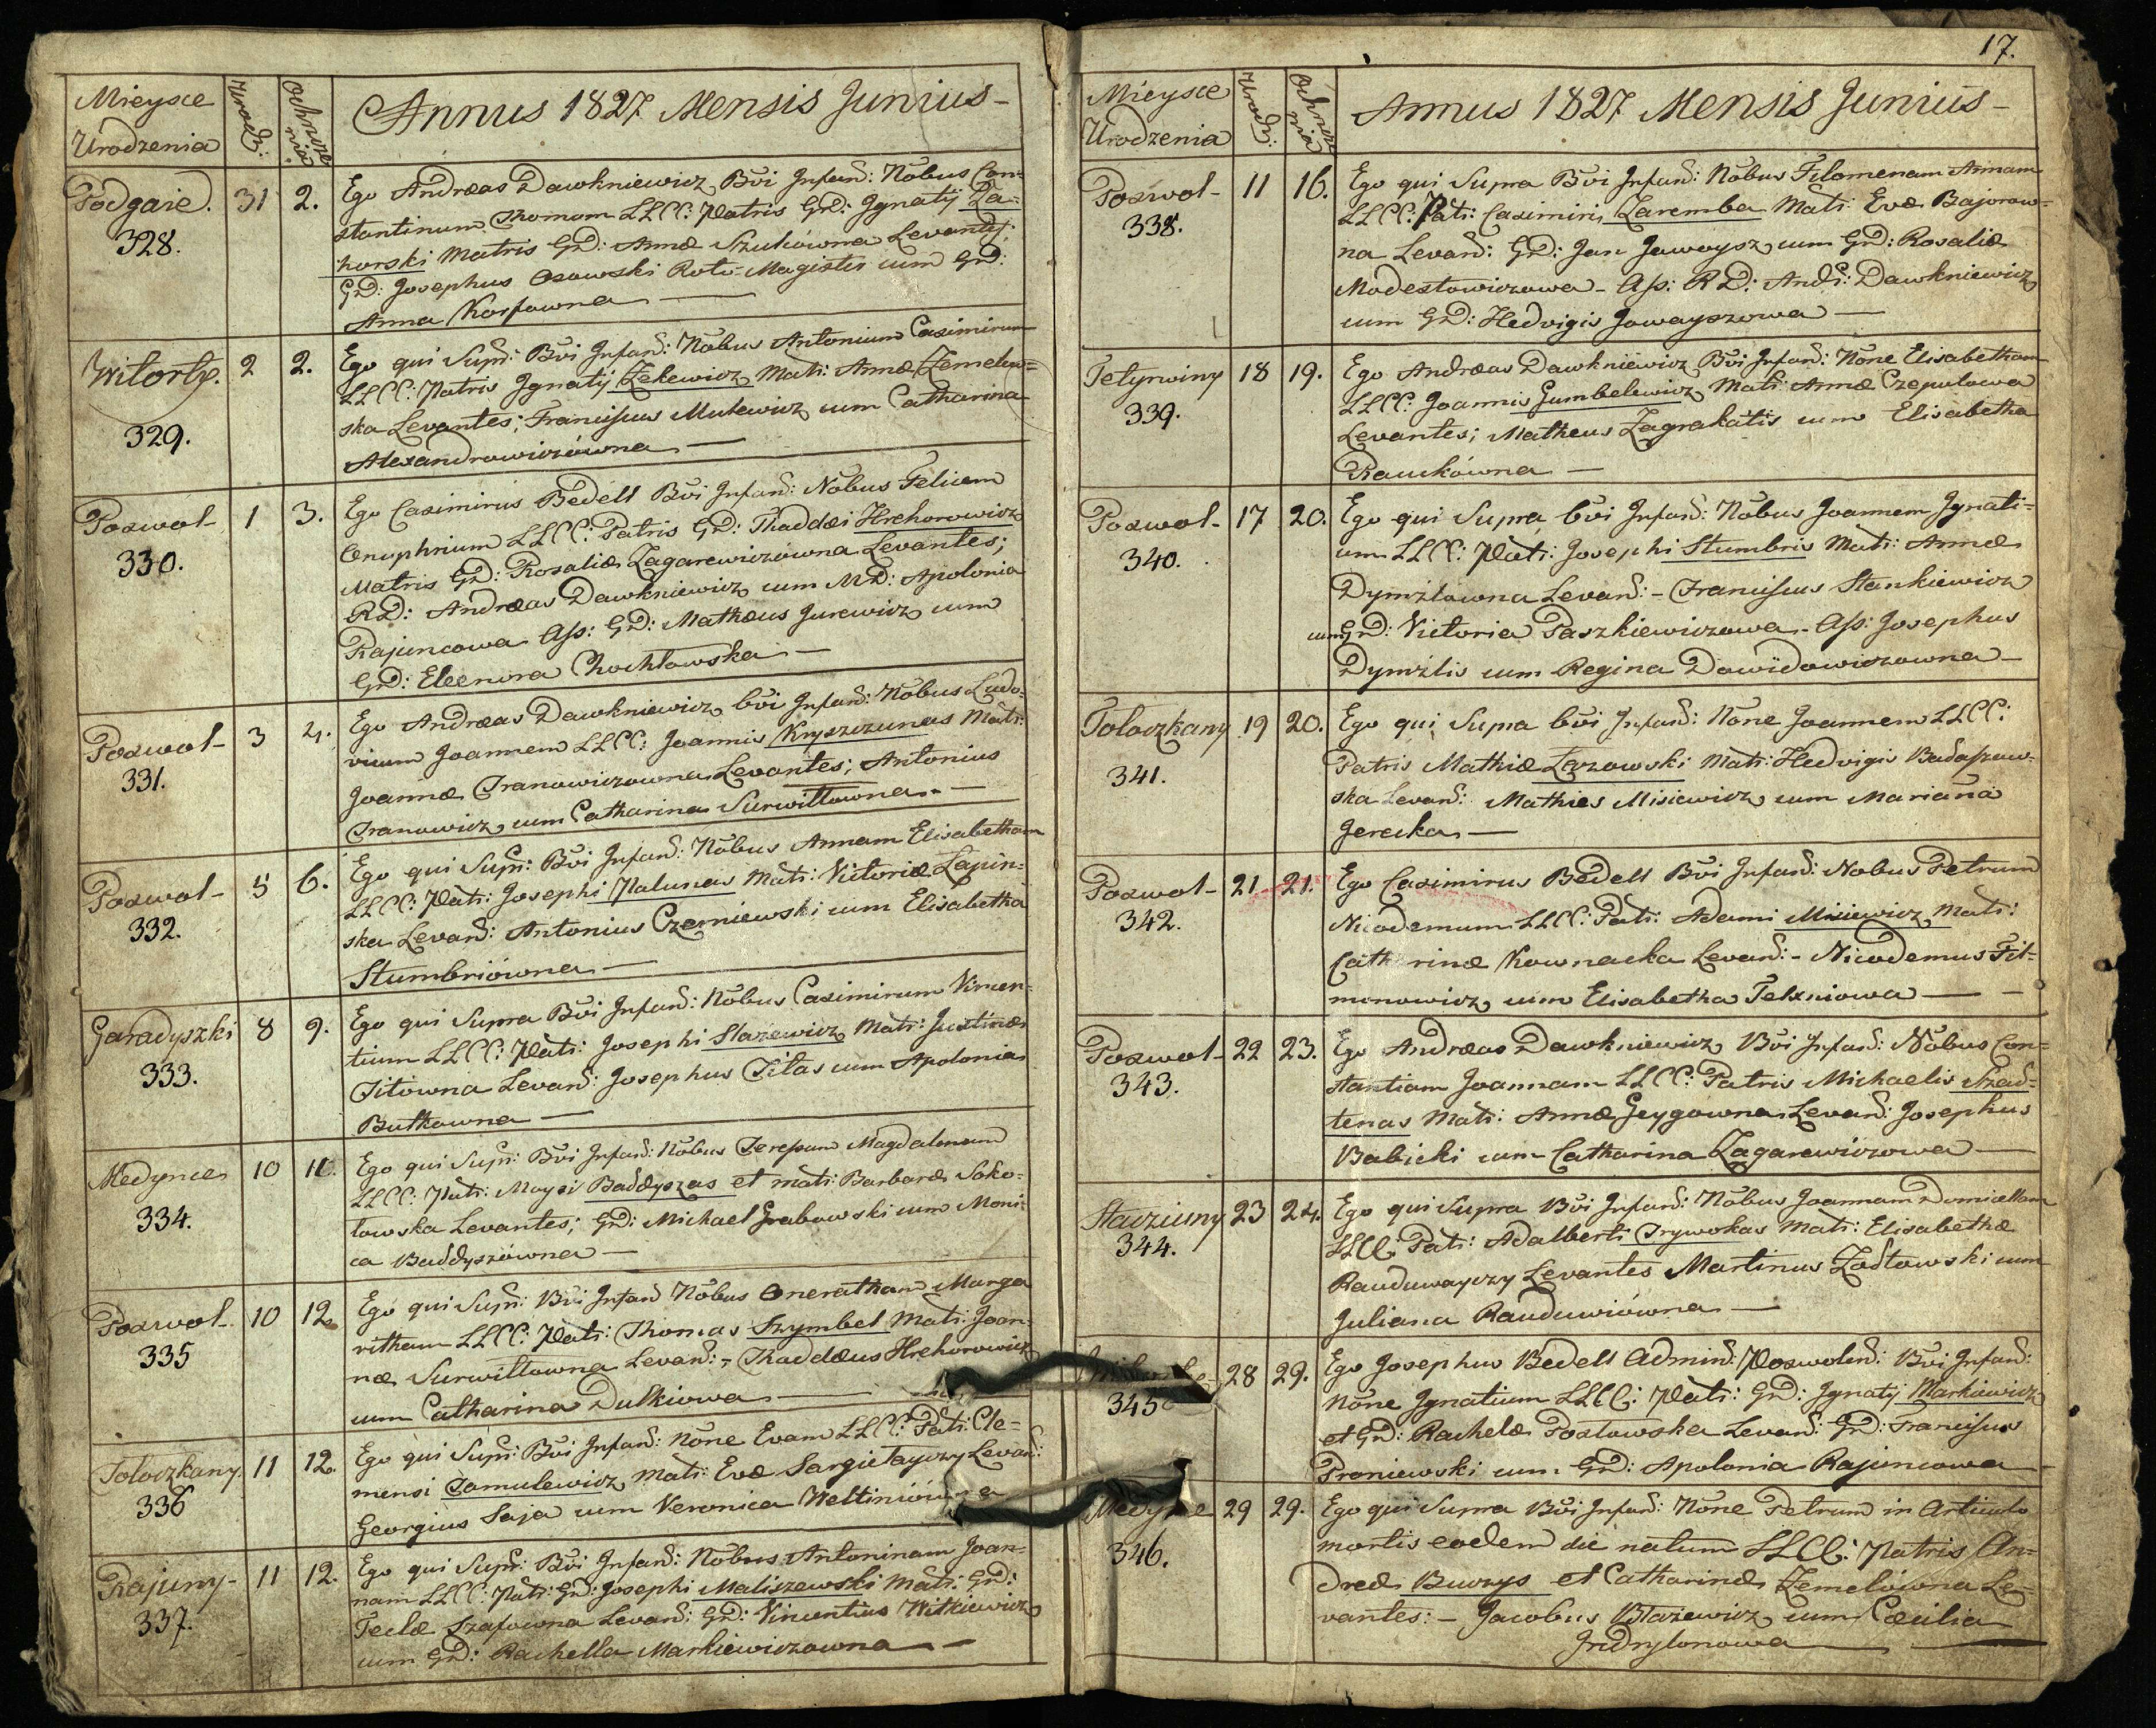 Mieysce
Urodzenia
Urodz:
Ochrzcze
nia
Annus 1827 Mensis Junius -
Podgaie. 31 2.
328.
Ego Andreas Dawkniewicz Bvi Infan: Nobus Con=
stantinum Thomam LLCC: Patris GD: Ignatij Za=
horski Matris GD: Annæ Szukiówna Levantes:
GD: Josephus Osowski Roto-Magister cum GD:
Anna Korfowna —
Witorty. 2 2.
329.
Ego qui Supr: Bvi Infan: Nobus Antonium Casimirum
LLCC: Patris Ignatij Zekewicz Mat: Annæ Zemelew=
ska Levantes; Franciscus Mulewicz cum Catharina
Alexandrowiczówna —
Poswol- 1 3.
330.
Ego Casimirus Bedell Bvi Infan: Nobus Felicem
Onuphrium LLCC: Patris GD: Thaddæi Hrehorowicz
Matris GD: Rosaliæ Zagarewiczówna Levantes;
RD: Andreas Dawkniewicz cum MD: Apolonia
Rajuncowa Ass: GD: Mathæus Jurewicz cum
GD: Eleonora Chochłowska —
Poswol- 3 4.
331.
Ego Andreas Dawkniewicz bvi Infan: Nobus Ludo=
vicum Joannem LLCC: Joannis Kryszczunas Mat:
Joannæ Iranowiczowna Levantes; Antonius
Iranowicz cum Catharina Surwiłłowna. —
Poswol- 5 6.
332.
Ego qui Supr: Bvi Infan: Nobus Annam Elisabetham
LLCC: Pat: Josephi Palunas Mat: Victoriæ Łapin=
ska Levan: Antonius Czerniewski cum Elisabetha
Stumbriówna —
Garadyszki 8 9.
333.
Ego qui Supra Bvi Infan: Nobus Casimirum Vincen=
tium LLCC: Pat: Josephi Stazewicz Mat: Justinæ
Titowna Levan: Josephus Titas cum Apolonia
Butkowna —
Medynce 10 11.
334.
Ego qui Supr: Bvi Infan: Nobus Teressam Magdalenam
LLCC: Pat: Moysi Baddyszas et mat: Barbaræ Soko=
łowska Levantes; GD: Michael Grabowski cum Moni=
ca Baddyszówna —
Poswol- 10 12
335
Ego qui Supr: Bvi Infan Nobus Oneratham Marga
ritham LLCC: Pat: Thomas Szymbel Mat: Joan=
næ Surwiłłowna Levan: - Thaddæus Hrehorowicz
cum Catharina Dulkiowa —
Tołoczkany. 11 12.
336
Ego qui Supr: Bvi Infan: None Evam LLCC: Pat: Cle=
mensi Tomulewicz Mat: Evæ Sargietayczy Levan:
Georgius Saja cum Veronica
Rajuny- 11 12.
337.
Ego qui Supr: Bvi Infan: Nobus Antoninam Joan=
nam LLCC: Pat: GD: Josephi Maliszewski Mat: GD:
Teclæ Szafowna Levan: GD: Vincentius Witkiewicz
cum GD: Rachella Markiewiczowna —
17.
Mieysce
Urodzenia
Urodz:
Ochrzcze
nia
Annus 1827 Mensis Junius -
Poswol- 11 16.
338.
Ego qui Supra Bvi Infan: Nobus Filomenam Annam
LLCC: Pat: Casimiri Zaremba Mat: Evæ Bajoraw=
na Levan: GD: Jan Jowaysz cum GD: Rosaliæ
Modestowiczowa - Ass: RD: And: Dawkniewicz
cum GD: Hedvigis Jowayszowa —
Tetyrwiny 18 19.
339.
Ego Andræas Dawkniewicz Bvi Infan: None Elisabetham
LLCC: Joannis Gumbelewicz Mat: Annæ Czepulowa
Levantes; Matheus Zagrakátis cum Elisabetha
Rauckówna —
Poswol- 17 20.
340.
Ego qui Supra bvi Infan: Nobus Joannem Ignati=
um LLCC: Pat: Josephi Stumbris Mat: Annæ
Dymżlowna Levan: - Franciscus Stankiewicz
cum GD: Victoria Paszkiewiczowa - Ass: Josephus
Dymżlis cum Regina Dawidowiczowna —
Tołoczkany 19 20.
341.
Ego qui Supra bvi Infan: None Joannem LLCC:
Patris Mathiæ Łazowski Mat: Hedvigis Badaszew=
ska Levan: Mathies Misiewicz cum Mariana
Gerecka —
Poswol- 21 21.
342.
Ego Casimirus Bedell Bvi Infan: Nobus Petrum
Nicodemum LLCC: Pat: Adami Misiewicz Mat:
Catharinæ Kownacka Levan: - Nicodemus Fil=
monowicz cum Elisabetha Telszniowa —
Poswol- 22 23.
343.
Ego Andreas Dawkniewicz Bvi Infan: Nobus Con=
stantiam Joannam LLCC: Patris Michaelis Szad=
tenas Mat: Annæ Geygowna Levan: Josephus
Babicki cum Catharina Zagarewiczowa —
Stacziuny 23 24.
344.
Ego qui Supra Bvi Infan: Nobus Joannam Domicellam
LLCC: Pat: Adalberti Trywokas Mat: Elisabethæ
Rauduwayczy Levantes Martinus Zodłowski cum
Juliana Rauduwiówna —
28 29.
345
Ego Josephus Bedell Admin: Poswolen: Bvi Infan:
None Ignatium LLCC: Pat: GD: Ignatij Markiewicz
et GD: Rachelæ Postowska Levan: GD: Franciscus
Proniewski cum GD: Apolonia Rajuncowa
Medynce 29 29.
346.
Ego qui Supra Bvi Infan: None Petrum in Articulo
mortis eodem die natum LLCC: Patris An=
dreæ Buwys et Catharinæ Zemelówna Le=
vantes: - Jacobus Błażewicz cum Cæcilia
Indrylonowa —